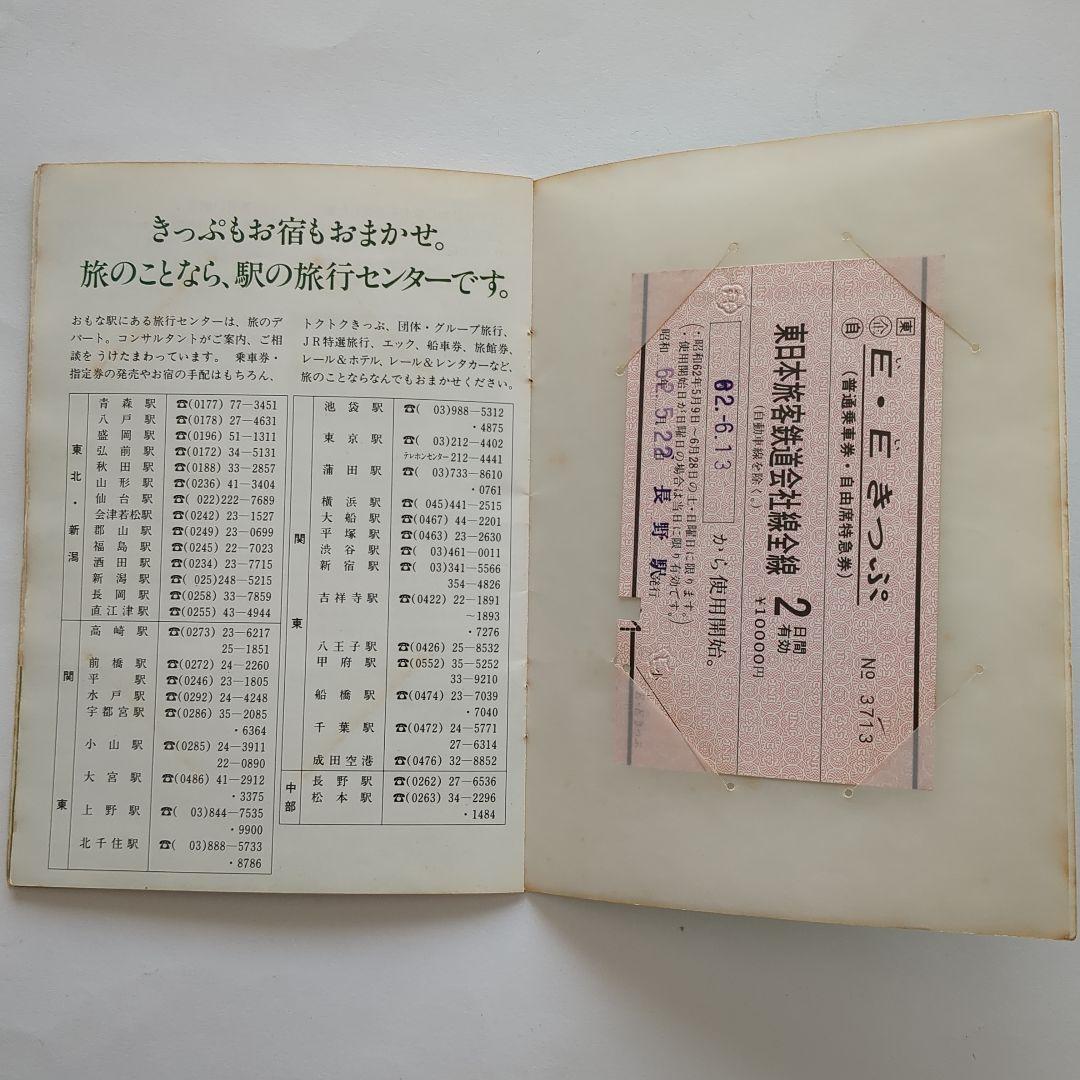 きっぷもお宿もおまかせ。
旅のことなら、駅の旅行センターです。
おもな駅にある旅行センターは、旅のデ
パート。コンサルタントがご案内、ご相
談をうけたまわっています。 乗車券・
指定券の発売やお宿の手配はもちろん、
トクトクきっぷ、団体・グループ旅行、
JR特選旅行、エック、船車券、旅館券、
レール&ホテル、レール&レンタカーなど、
旅のことならなんでもおまかせください。
東北・新潟
青森駅 ☎(0177) 77―3451
八戸駅 ☎(0178) 27―4631
盛岡駅 ☎(0196) 51―1311
弘前駅 ☎(0172) 34―5131
秋田駅 ☎(0188) 33―2857
山形駅 ☎(0236) 41―3404
仙台駅 ☎( 022)222―7689
会津若松駅 ☎(0242) 23―1527
郡山駅 ☎(0249) 23―0699
福島駅 ☎(0245) 22―7023
酒田駅 ☎(0234) 23―7715
新潟駅 ☎( 025)248―5215
長岡駅 ☎(0258) 33―7859
直江津駅 ☎(0255) 43―4944
関東
高崎駅 ☎(0273) 23―6217
25―1851
前橋駅 ☎(0272) 24―2260
平駅 ☎(0246) 23―1805
水戸駅 ☎(0292) 24―4248
宇都宮駅 ☎(0286) 35―2085
・6364
小山駅 ☎(0285) 24―3911
22―0890
大宮駅 ☎(0486) 41―2912
・3375
上野駅 ☎( 03)844―7535
・9900
北千住駅 ☎( 03)888―5733
・8786
関東
池袋駅 ☎( 03)988―5312
・4875
東京駅 ☎( 03)212―4402
テレホンセンター212―4441
蒲田駅 ☎( 03)733―8610
・0761
横浜駅 ☎( 045)441―2515
大船駅 ☎(0467) 44―2201
平塚駅 ☎(0463) 23―2630
渋谷駅 ☎( 03)461―0011
新宿駅 ☎( 03)341―5566
354―4826
吉祥寺駅 ☎(0422) 22―1891
～1893
・7276
八王子駅 ☎(0426) 25―8532
甲府駅 ☎(0552) 35―5252
33―9210
船橋駅 ☎(0474) 23―7039
・7040
千葉駅 ☎(0472) 24―5771
27―6314
成田空港 ☎(0476) 32―8852
中部
長野駅 ☎(0262) 27―6536
松本駅 ☎(0263) 34―2296
・1484
東 企 自
E・Eきっぷ
(普通乗車券・自由席特急券)
№ 3713
東日本旅客鉄道会社線全線 2日間有効
(自動車線を除く。)
¥10000円
62.-6.13 から使用開始。
(：昭和62年5月9日～6月28日の土・日曜日に限ります。
：使用開始日が日曜日の場合は当日に限り有効です。)
昭和 62年5月22日 長野駅発行